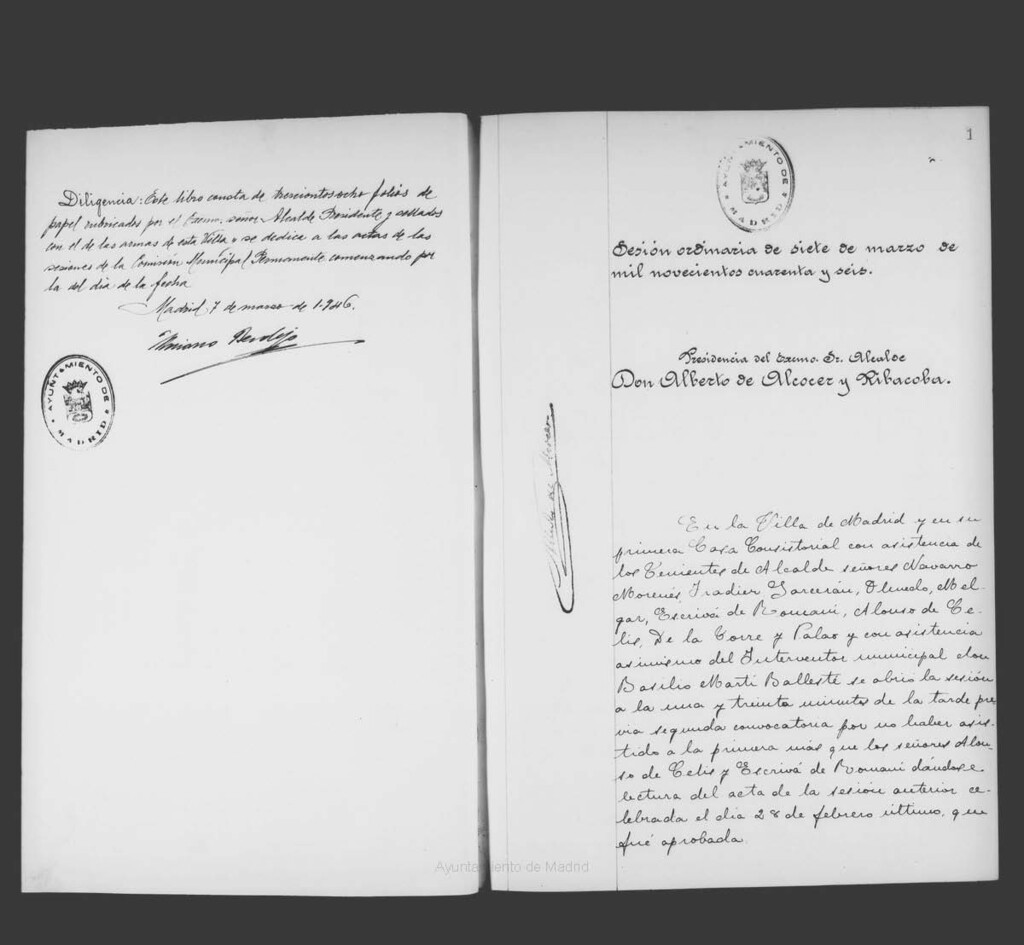 Diligencia: Este libro consta de trescientos ocho folios de
papel rubricados por el Excmo. señor Alcalde Presidente y sellados
con el de las armas de esta Villa y se dedica a las actas de las
sesiones de la Comisión Municipal Permanente comenzando por
la del dia de la fecha
Madrid 7 de marzo de 1.946.
AYUNTAMIENTO DE
MADRID
1
AYUNTAMIENTO DE
MADRID
Sesión ordinaria de siete de marzo de
mil novecientos cuarenta y seis.
Presidencia del Excmo. Sr. Alcalde
Don Alberto de Alcocer y Ribacoba.
En la Villa de Madrid y en su
primera Casa Consistorial con asistencia de
los Tenientes de Alcalde señores Navarro
Morenés, Iradier, Garcerán, Olmedo, Mel-
gar, Escrivá de Romani, Alonso de Ce-
lis, De la Torre y Palao y con asistencia
asimismo del Interventor municipal don
Basilio Martí Ballesté se abrió la sesión
a la una y treinta minutos de la tarde pre-
via segunda convocatoria por no haber asis-
tido a la primera más que los señores Alon-
so de Celis y Escrivá de Romani dándose
lectura del acta de la sesión anterior ce-
lebrada el dia 28 de febrero último, que
fué aprobada.
Ayuntamiento de Madrid